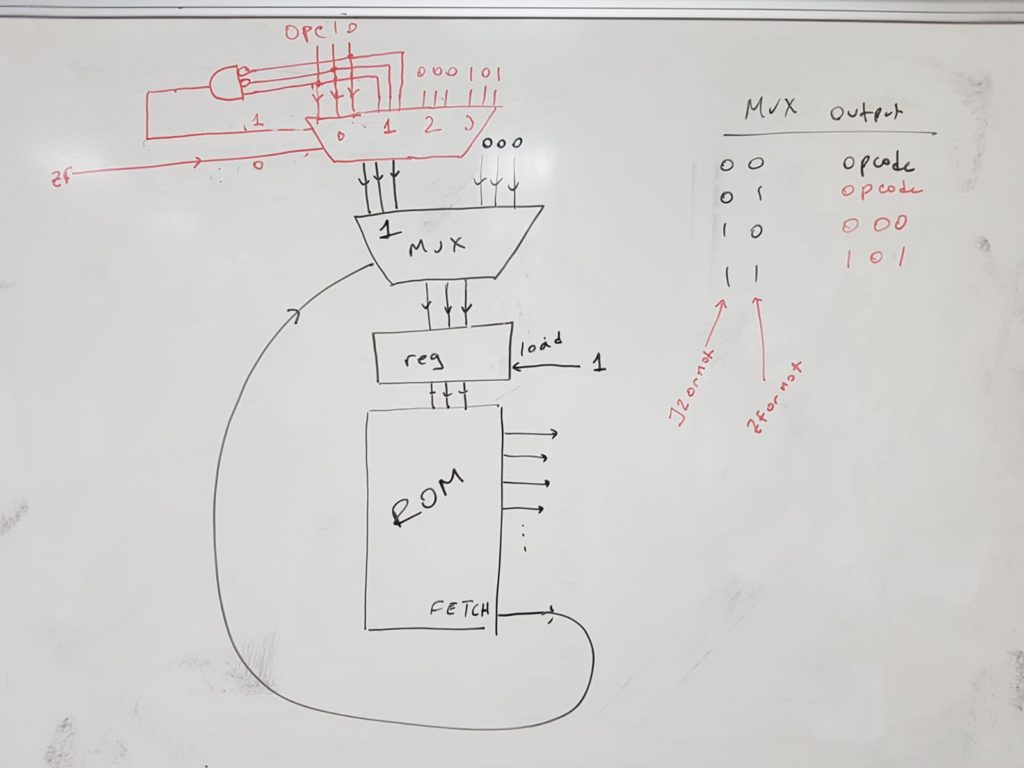 OPC 1 0
000 101
1
0 1 2 3
zf 0
000
1
MUX
reg load 1
ROM
FETCH
MUX output
0 0 opcode
0 1 opcode
1 0 000
1 1 101
JZ or not
zf or not